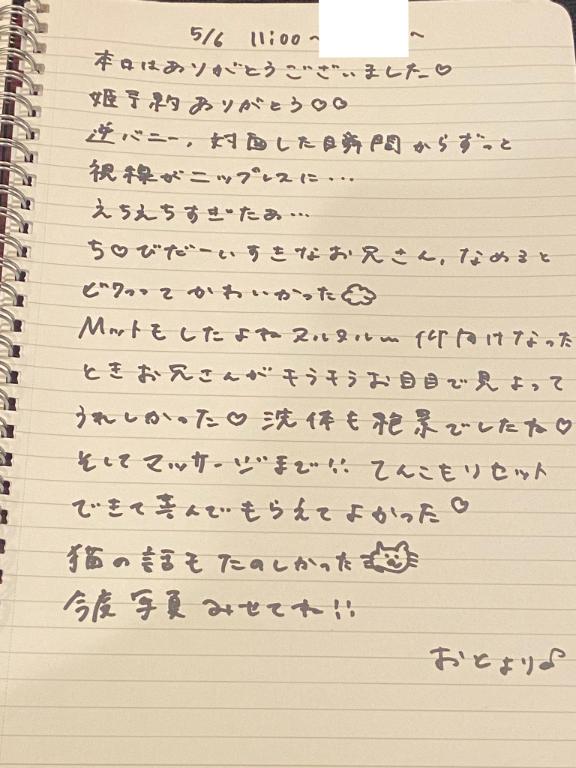 5/6 11:00～ ～
本日はありがとうございました♡
姫予約ありがとう♡♡
逆バニー、対面した瞬間からずっと
視線がニップレスに…
えちえちすぎたぁ…
ち♡びだーいすきなお兄さん、なめると
ビクってってかわいかった
Mットもしたよねヌルヌル〜 仰向けなった
ときお兄さんがモうモうお目目で見よって
うれしかった♡ 洗体も絶景でしたね♡
そしてマッサージまで!! てんこもりセット
できて喜んでもらえてよかった♡
猫の話もたのしかった
今度写真みせてね!!
おとより♪